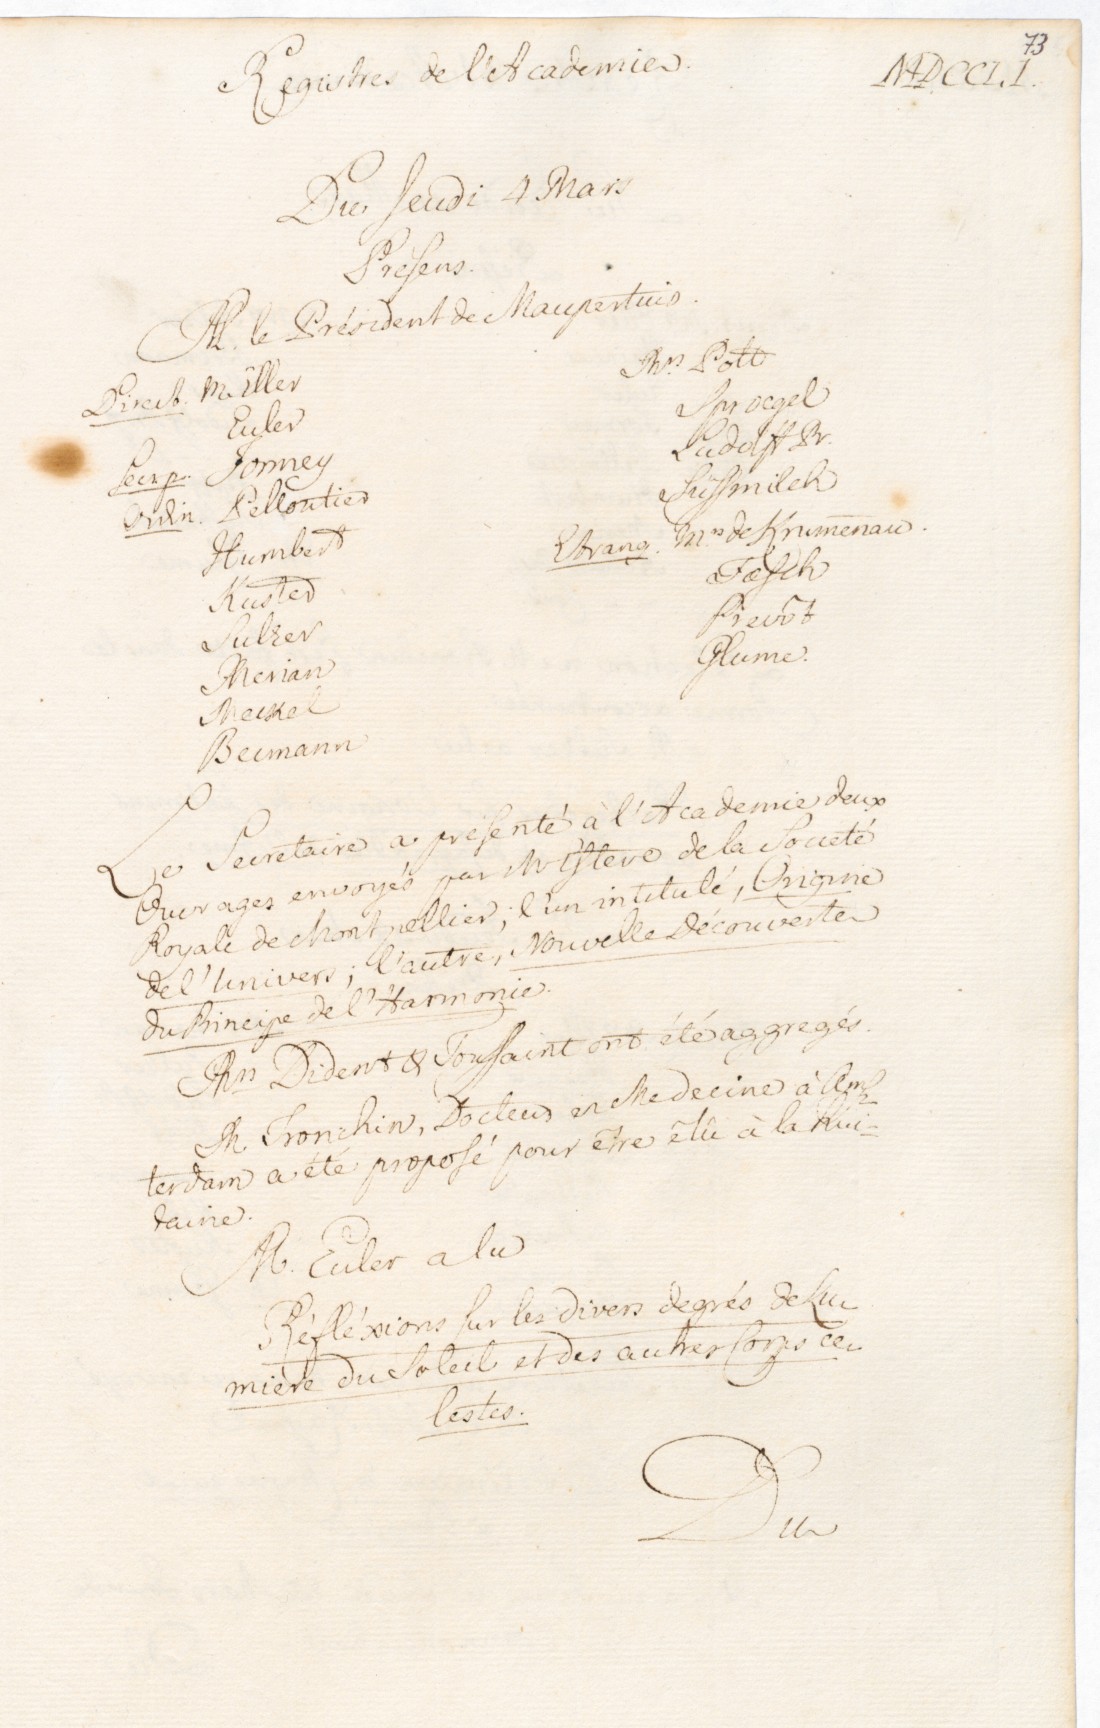 73
Registres de l'Academie.
MDCCLI.
Du Jeudi 4 Mars
Présens.
M. le Président de Maupertuis.
Direct. Müller
Euler
Secr. p. Formey
Ordin. Pelloutier
Humbert
Kuster
Sulzer
Merian
Meckel
Becmann
Mrs Pott
Sproegel
Ludolff Pr.
Süssmilch
Etrang. Mrs de Krumenau.
Faesch
Prevôt
Glume.
Le Secretaire a presenté à l'Academie deux
Ouvrages envoyés par M. Esteve de la Societé
Royale de Montpellier; l'un intitulé, Origine
de l'Univers; l'autre, Nouvelle Découverte
du Principe de l'Harmonie.
Mrs Diderot & Toussaint ont été aggregés.
M. Tronchin, Docteur en Medecine à Ams-
terdam a été proposé pour être êlû à la hui-
taine.
M. Euler a lu
Réfléxions sur les divers degrés de Lu-
mière du Soleil et des autres Corps ce-
lestes.
Du